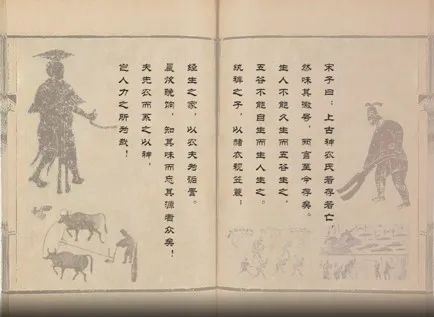 宋子曰：上古神农氏若存若亡，
然味其徽号，两言至今存矣。
生人不能久生而五谷生之，
五谷不能自生而生人生之。
纨裤之子，以赭衣视笠蓑；
经生之家，以农夫为诟詈。
晨炊晚饷，知其味而忘其源者众矣！
夫先农而系之以神，
岂人力之所为哉！